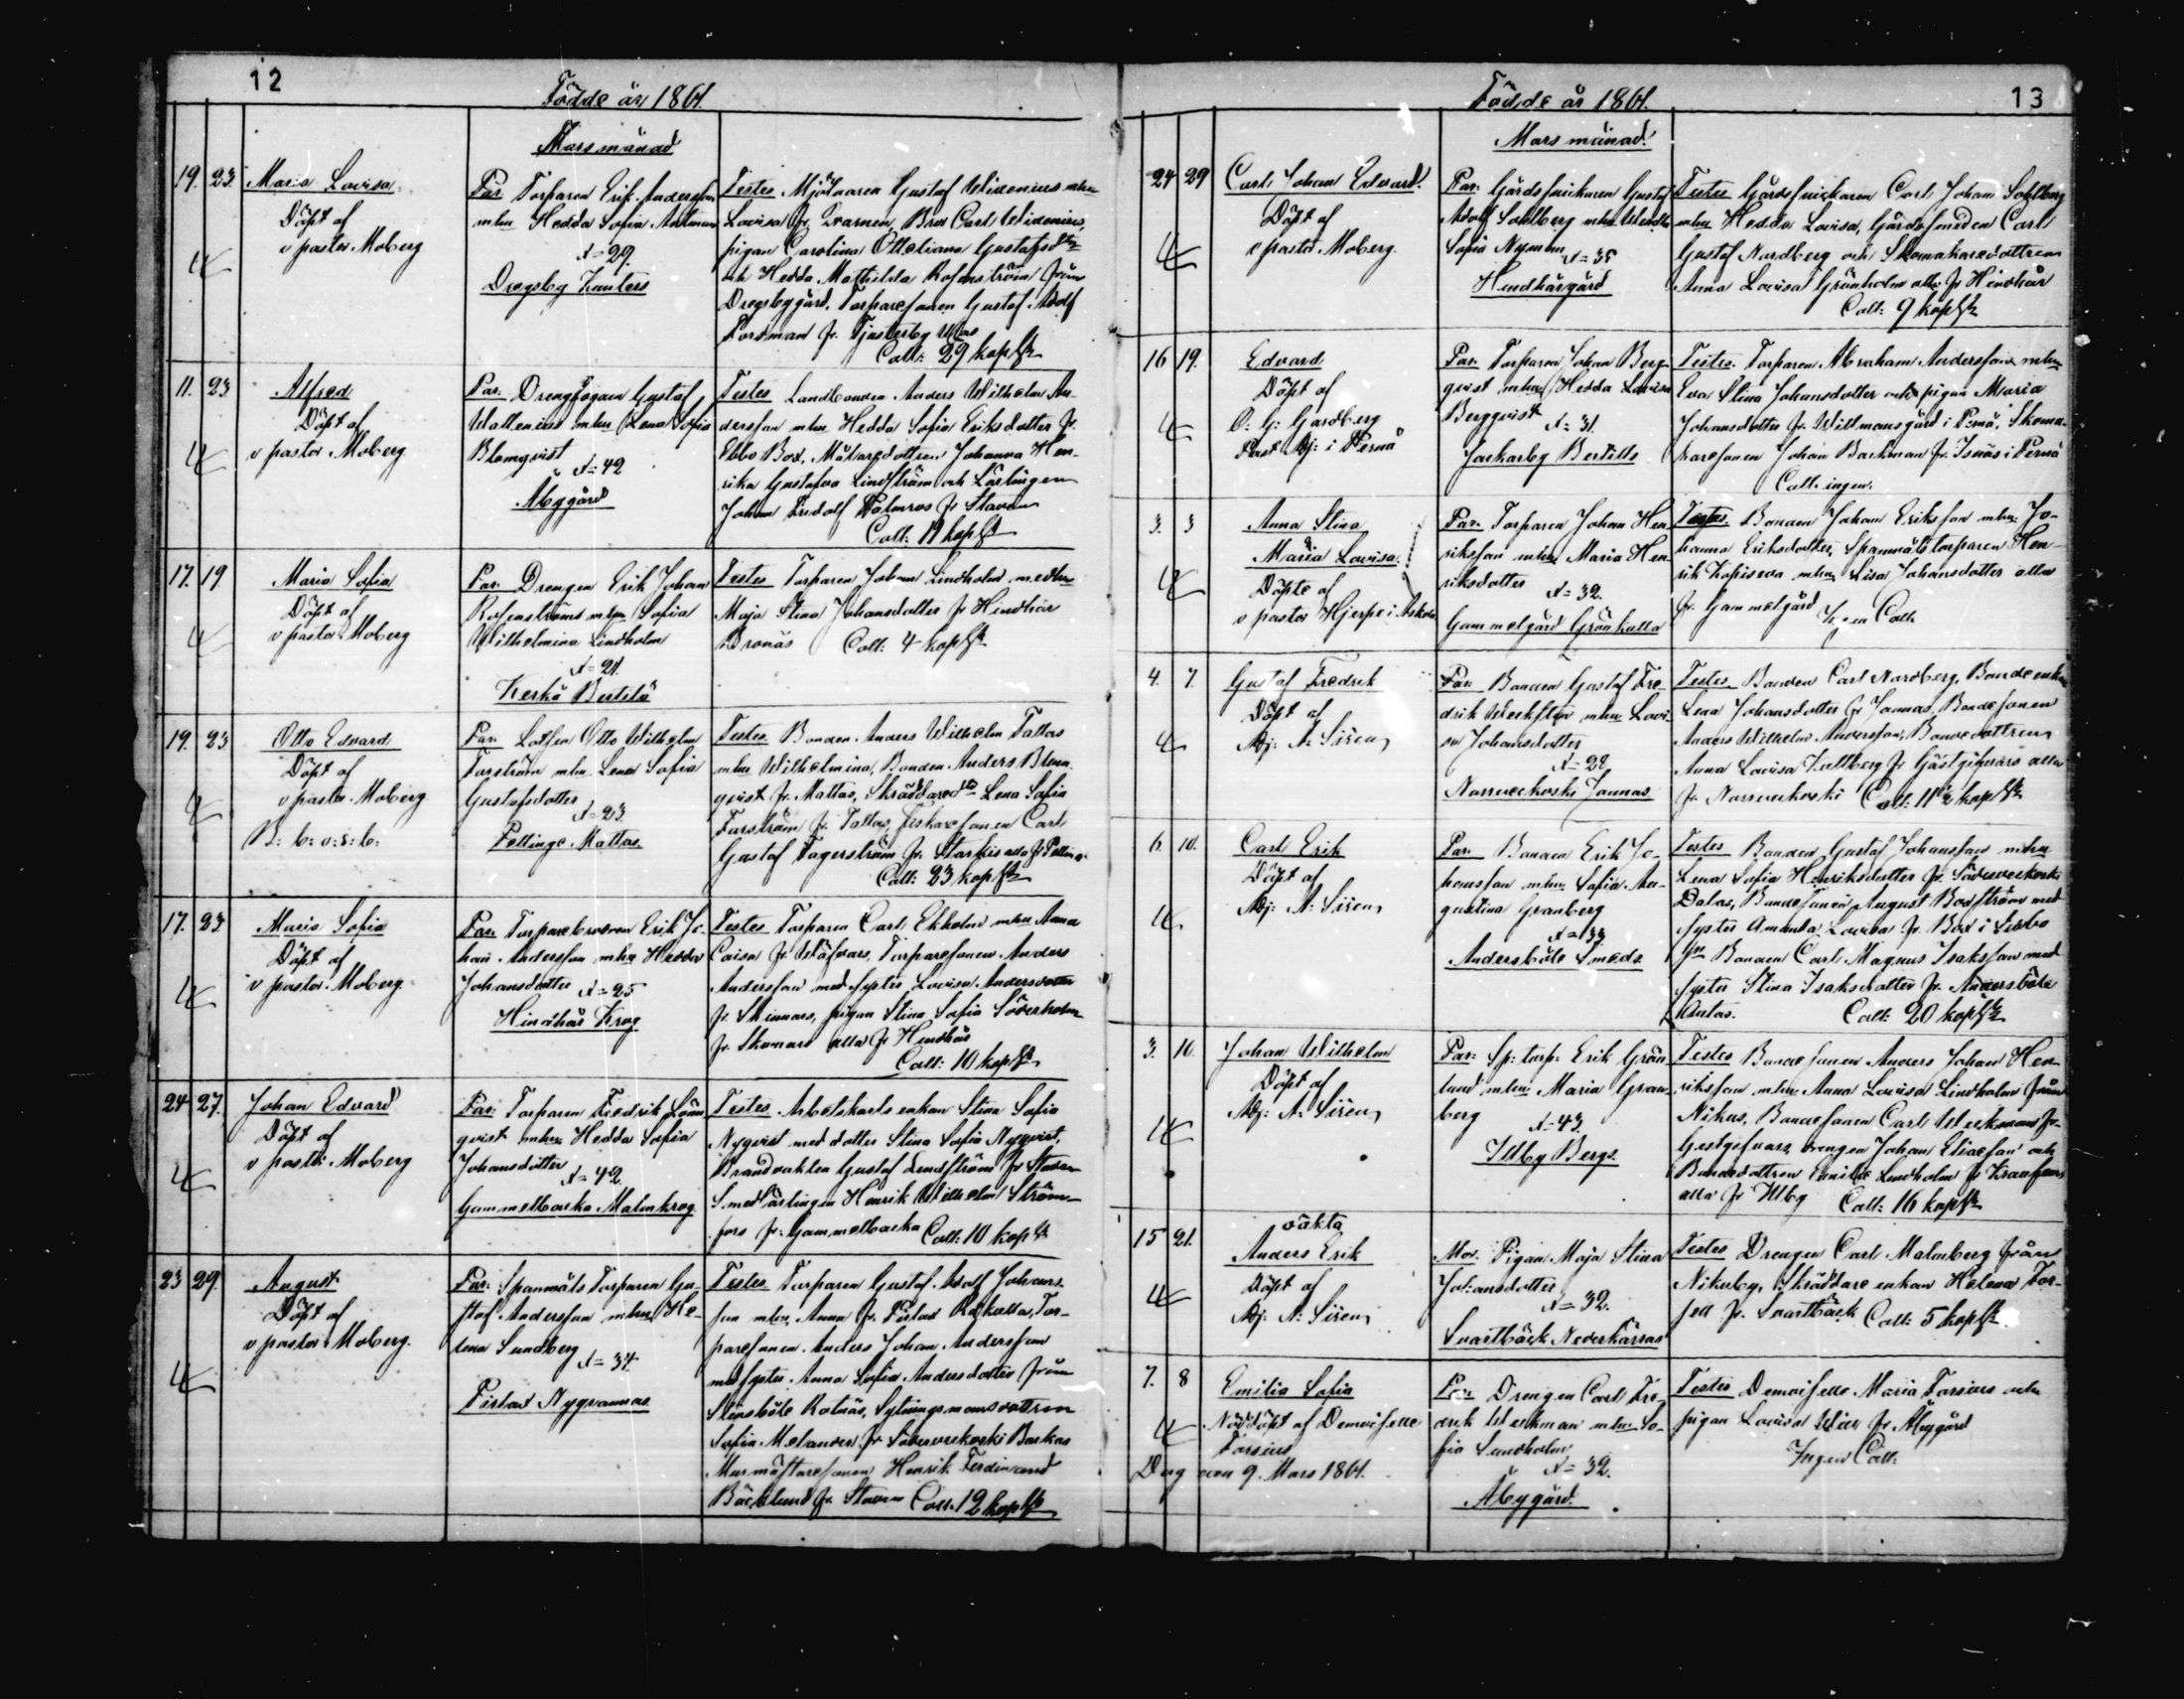 12
Födde år 1861.
Mars månad
19. 23. Maria Lovisa.
Döpt af
v pastor Moberg
Par. Torparen Erik Andersson
mhu Hedda Sofia
A= 29.
Drägsby Kanters
Testes Mjölnaren Gustaf Widenius mhu
Lovisa fr. Qvarnen, Bror Carl Widenius,
pigan Carolina Otteliana Gustafsdtr
och Hedda Mathilda Rosenström från
Drägsbygård, Torparesonen Gustaf Adolf
Forsman fr. Tjusterby
Coll: 29 kop Sr
11. 23 Alfred
Döpt af
v pastor Moberg
Par. Drengfogden Gustaf
Wallenius mhu Lena Sofia
Blomqvist
A= 42
Åbygård
Testes Landbonden Anders Wilhelm An-
dersson mhu Hedda Sofia Eriksdotter fr.
Ebbo Box, Målaredottren Johanna Hen-
rika Gustafva Lindström och Lärlingen
Johan Fridolf Palmros fr Staden
Coll: 11 kop Sr
17. 19 Maria Sofia
Döpt af
v pastor Moberg
Par. Drengen Erik Johan
Rosenströms mhu Sofia
Wilhelmina Lindholm
A= 21.
Kerkö Bertilä
Testes Torparen Johan Lindholm med hu
Maja Stina Johansdotter fr Hindhår
Bronäs Coll: 4 kop Sr
19. 23 Otto Edvard
Döpt af
v pastor Moberg
B: b: o: s: b:
Par. Lotsen Otto Wilhelm
Furström mhu Lena Sofia
Gustafsdotter
A= 23.
Pellinge Mattas.
Testes. Bonden Anders Wilhelm Tallas
mhu Wilhelmina, Bonden Anders Blom-
qvist fr. Mattas, Skräddaredtr Lena Sofia
Furström fr. Tallas, Fiskaresonen Carl
Gustaf Fagerström fr. Starkis alla fr Pelling.
Coll: 23 kop Sr
17. 23. Maria Sofia
Döpt af
v pastor Moberg.
Par. Torparebrodren Erik Jo-
han Andersson mhu Hedda
Johansdotter A= 25
Hindhår Krog
Testes Torparen Carl Ekholm mhu Anna
Caisa fr. Wäfvars, Torparesonen Anders
Andersson med syster Lovisa Andersdotter
fr. Skinnars, pigan Stina Sofia Söderholm
fr. Skomars alla fr Hindhår
Coll: 10 kop Sr
24 27. Johan Edvard
Döpt af
v pastor Moberg
Par. Torparen Fredrik Lönn
qvist mhu Hedda Sofia
Johansdotter
A= 42.
Gammelbacka Malmkrog
Testes Arbetskarls enkan Stina Sofia
Nyqvist med dotter Stina Sofia Nyqvist,
Brandvakten Gustaf Lindström fr Staden
Smedlärlingen Henrik Wilhelm Ström-
fors fr: Gammelbacka Coll: 10 kop Sr
23 29. August
Döpt af
v pastor Moberg.
Par: Spanmåls Torparen Gu-
staf Andersson mhu He-
lena Sundberg
A= 34.
Pirlax Nygrannas
Testes. Torparen Gustaf Adolf Johans-
son mhu Anna fr. Pirlax Råkulla, Tor-
paresonen Anders Johan Andersson
med syster Anna Sofia Andersdotter från
Stensböle Rotnäs, Sytningsmansdottren
Sofia Melander fr Söderveckoski Backas
Murmästaresonen Henrik Ferdinand
Bäcklund fr. Staden Coll: 12 kop Sr
13
Födde år 1861.
Mars månad.
24 29 Carl Johan Edvard.
Döpt af
v pastor Moberg.
Par. Gårdssnickaren Gustaf
Adolf Sahlberg mhu Wendla
Sofia Nyman A= 35
Hindhårgård
Testes Gårdssnickaren Carl Johan Sahlberg
mhu Hedda Lovisa, Gårdssmeden Carl
Gustaf Nordberg och Skomakaredottren
Anna Lovisa Grönholm alla fr Hindhår
Coll: 9 kop Sr
16 19. Edvard
Döpt af
O. G. Gardberg
Past Adj: i Pernå
Par. Torparen Johan Berg-
qvist mhu Hedda Lovisa
Bergqvist A= 31.
Jackarby Bertills
Testes. Torparen Abraham Andersson mhu
Eva Stina Johansdotter och pigan Maria
Johansdotter fr. Willmansgård i Pernå, Skoma-
karesonen Johan Backman fr. Isnäs i Pernå
Coll. ingen.
3. 3 Anna Stina
&
Maria Lovisa.
Döpte af
v pastor Hjerpe i Askola
Par. Torparen Johan Hen-
riksson mhu Maria Hen-
riksdotter A= 32.
Gammelgård Grönkulla
Testes. Bonden Johan Eriksson mhu Jo-
hanna Eriksdotter, Spanmåls torparen Hen-
rik mhu Lisa Johansdotter alla
fr. Gammelgård Ingen Coll.
4. 7. Gustaf Fredrik
Döpt af
Adj: A: Sirén
Par. Bonden Gustaf Fre-
drik Weckström mhu Lovi-
sa Johansdotter
A= 28
Norrveckoski Jannas
Testes Bonden Carl Nordberg, Bondeenkan
Lena Johansdotter fr Jannas, Bondesonen
Anders Wilhelm Andersson, Bondedottren
Anna Lovisa Kullberg fr Gästgifvars alla
fr. Norrveckoski Coll: 11½ kop Sr
6. 10. Carl Erik
Döpt af
Adj: A: Sirén
Par. Bonden Erik Jo-
hansson mhu Sofia Au-
gustina Granberg
A= 33
Andersböle Smeds
Testes Bonden Gustaf Johansson mhu
Lena Sofia Henriksdotter fr. Söderveckoski
Dalas, Bondesonen August Boxström med
syster Amanda Lovisa fr. Box i Sibbo
Sn Bonden Carl Magnus Isaksson med
syster Stina Isaksdotter fr. Andersböle
Antas. Coll: 20 kop Sr
3. 10. Johan Wilhelm
Döpt af
Adj: A: Sirén
Par: Sp: torp: Erik Grön-
lund mhu Maria Gran-
berg
A= 43.
Illby Bergs.
Testes Bondesonen Anders Johan Hen-
riksson mhu Anna Lovisa Lindholm från
Nikus, Bondesonen Carl Weckman fr.
Gestgifvars, Drengen Johan Eliaeson och
Bondedottren Emilie Lindholm fr
alla fr Illby Coll: 16 kop Sr
15 21. oäkta
Anders Erik
Döpt af
Adj: A: Sirén
Mod. Pigan Maja Stina
Johansdotter
A= 32.
Svartbäck Nederkärras
Testes Drengen Carl Malmberg från
Nikuby, Skräddare enkan Helena For-
sell fr. Svartbäck Coll: 5 kop Sr.
7. 8 Emilia Sofia
Nöddöpt af Demoiselle
Forsius
Dog den 9. Mars 1861.
Par. Drengen Carl Fre-
drik Weckman mhu So-
fia Lundholm
A= 32.
Åbygård.
Testes Demoiselle Maria Forsius och
pigan Lovisa fr Åbygård
Ingen Coll.